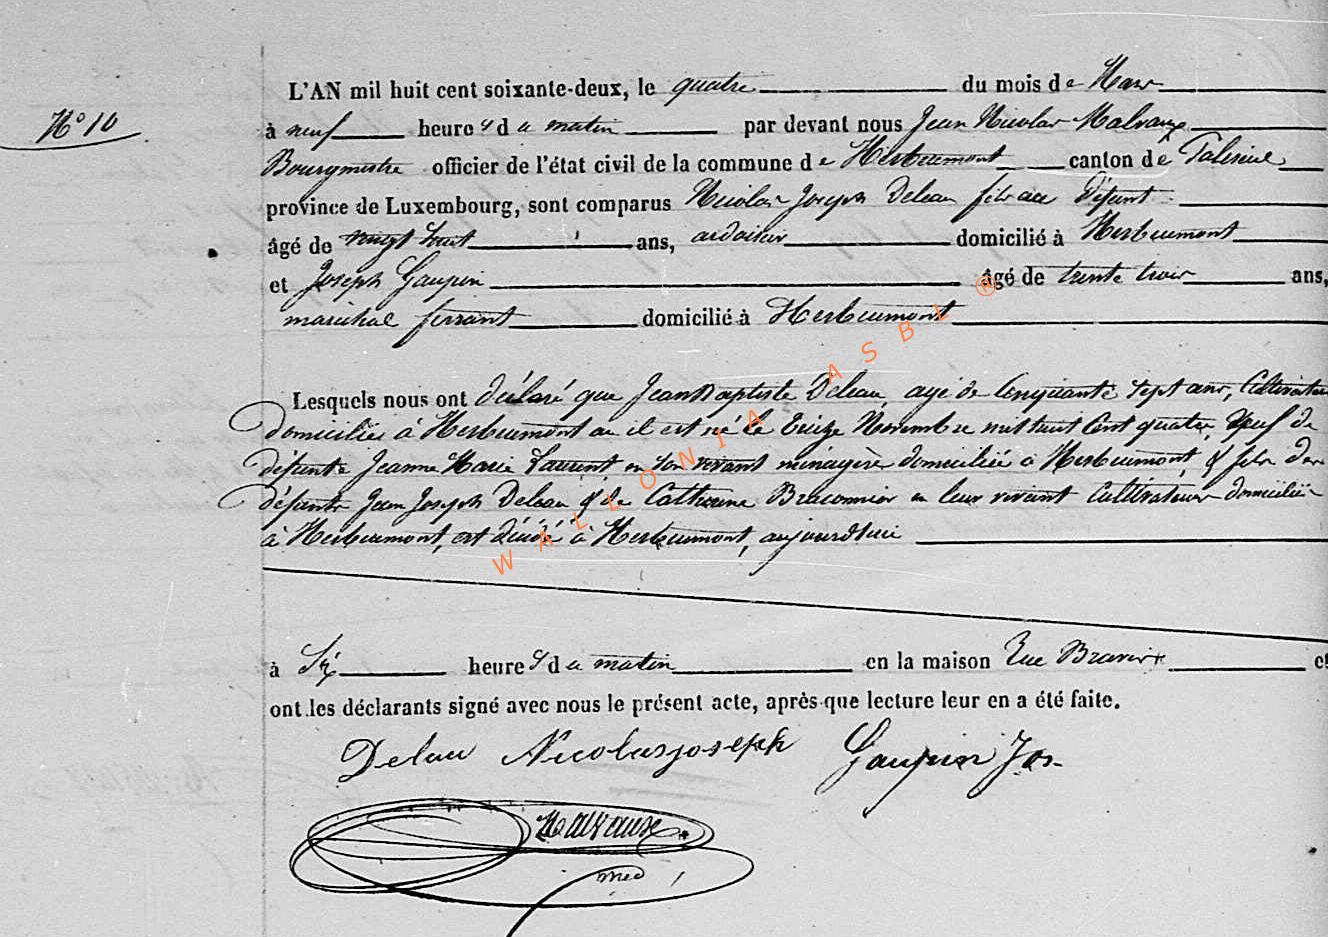 N° 10
L'AN mil huit cent soixante-deux, le quatre du mois de Mars
à neuf heures du matin par devant nous Jean Nicolas Malvaux
Bourgmestre officier de l'état civil de la commune de Herbeumont canton de Paliseul
province de Luxembourg, sont comparus Nicolas Joseph Deleau fils au Défunt
âgé de vingt huit ans, ardoisier domicilié à Herbeumont
et Joseph Gaupin âgé de trente trois ans,
maréchal ferrant domicilié à Herbeumont
Lesquels nous ont déclaré que Jean Baptiste Deleau agé de Cinquante sept ans, Cultivateur
domicilié à Herbeumont où il est né le Treize Novembre mil huit Cent quatre, Veuf de
défunte Jeanne Marie Laurent en son vivant ménagère domiciliée à Herbeumont, & fils des
défunts Jean Joseph Deleau & de Catherine Braconnier en leur vivant Cultivateurs domiciliés
à Herbeumont, est décédé à Herbeumont, aujourd'hui
à Six heures du matin en la maison Rue et
ont les déclarants signé avec nous le présent acte, après que lecture leur en a été faite.
Deleau Nicolas joseph Gaupin Jos
Malvaux
WALLONIA ASBL ®